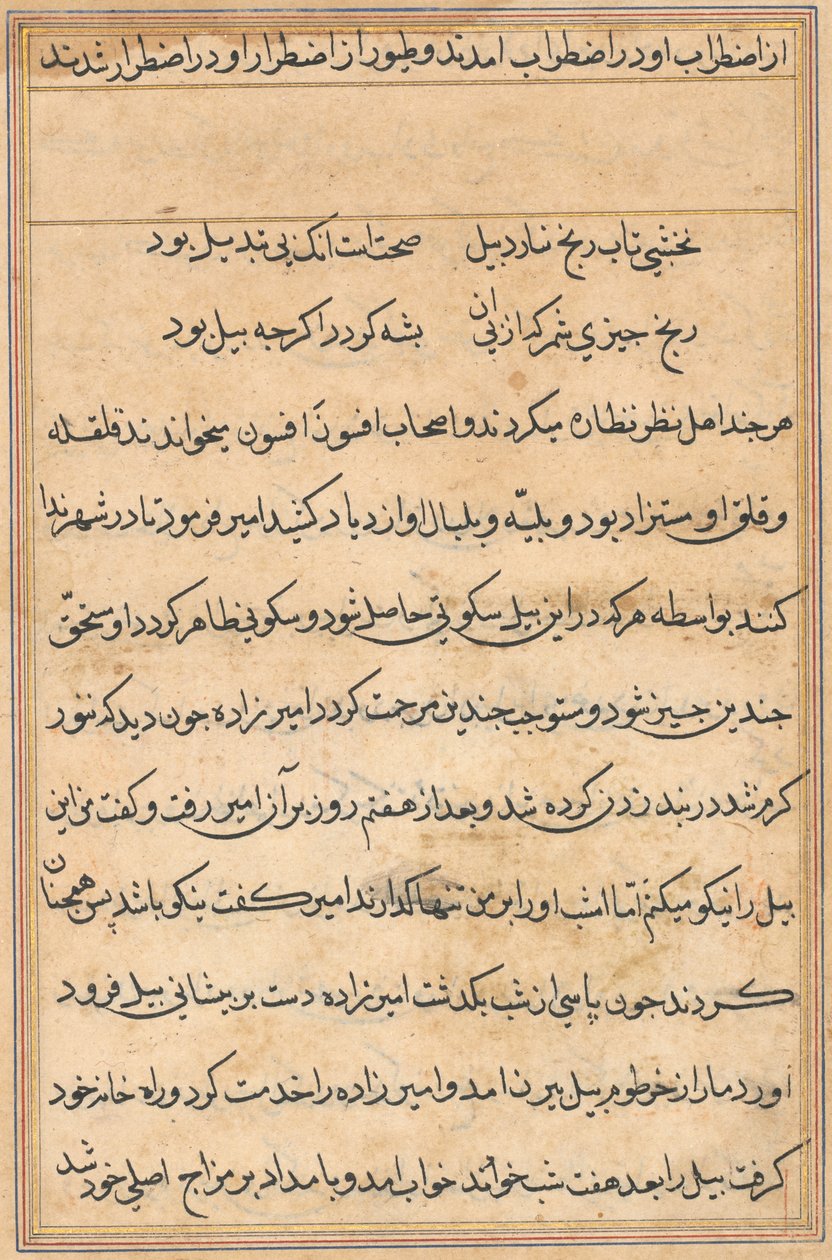 از اضطراب او در اضطراب امدند و طیور از اضطرار او در اضطرار شدند
نخشبی تاب رنج نارد بیل صحت است انک بی تبدیل بود
رنج جیزی شمر که از بی ان بشه کردد اکرجه بیل بود
هر جند اهل نظر نظاره میکردند و اصحاب افسون افسون میخواندند قلقله
و قلق او مستزاد بود و بلیّه و بلبال او ازدیاد کشید امیر فرمود تا در شهر ندا
کنند بواسطه هر که در این بیل سکوتی حاصل شود و سکونی ظاهر کردد او مستحقّ
جندین جیز شود و مستوجب جندین مرحمت کردد امیرزاده جون دید که تنور
کرم شد در بند زدن کرده شد و بعد از هفتم روز بر آن امیر رفت و کفت من این
بیل را نیکو میکنم امّا امشب او را بر من تنها کدارند امیر کفت نیکو باشد بس همجنان
کردند جون پاسی از شب بکدشت امیرزاده دست بر بیشانی بیل فرود
اورد مار از خرطوم بیل بیرن امد و امیرزاده را خدمت کرد و راه خانه خود
کرفت بیل را بعد هفت شب خواند خواب امد و بامداد بر مزاج اصلی خود شد